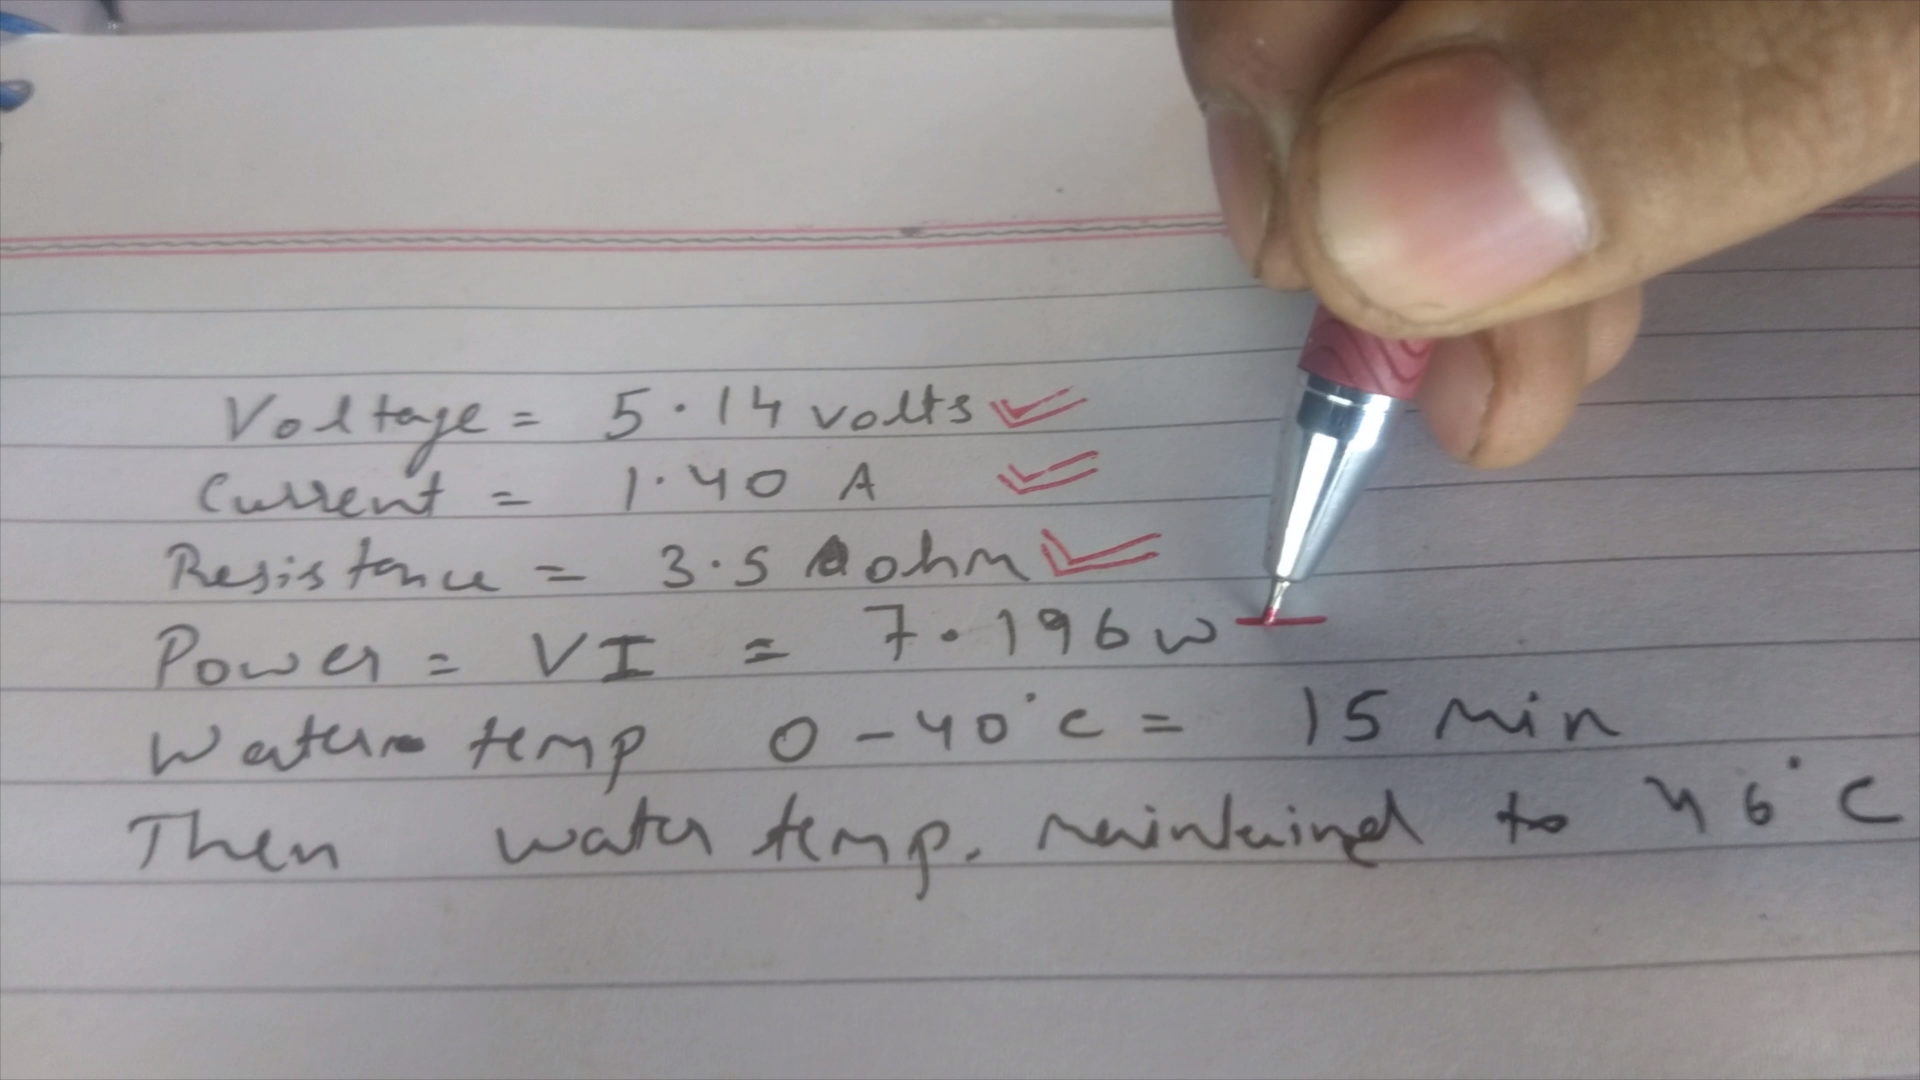 Voltage = 5.14 volts
Current = 1.40 A
Resistance = 3.5 ohm
Power = VI = 7.196 w
Water temp 0-40°C = 15 min
Then water temp. maintained to 46°C